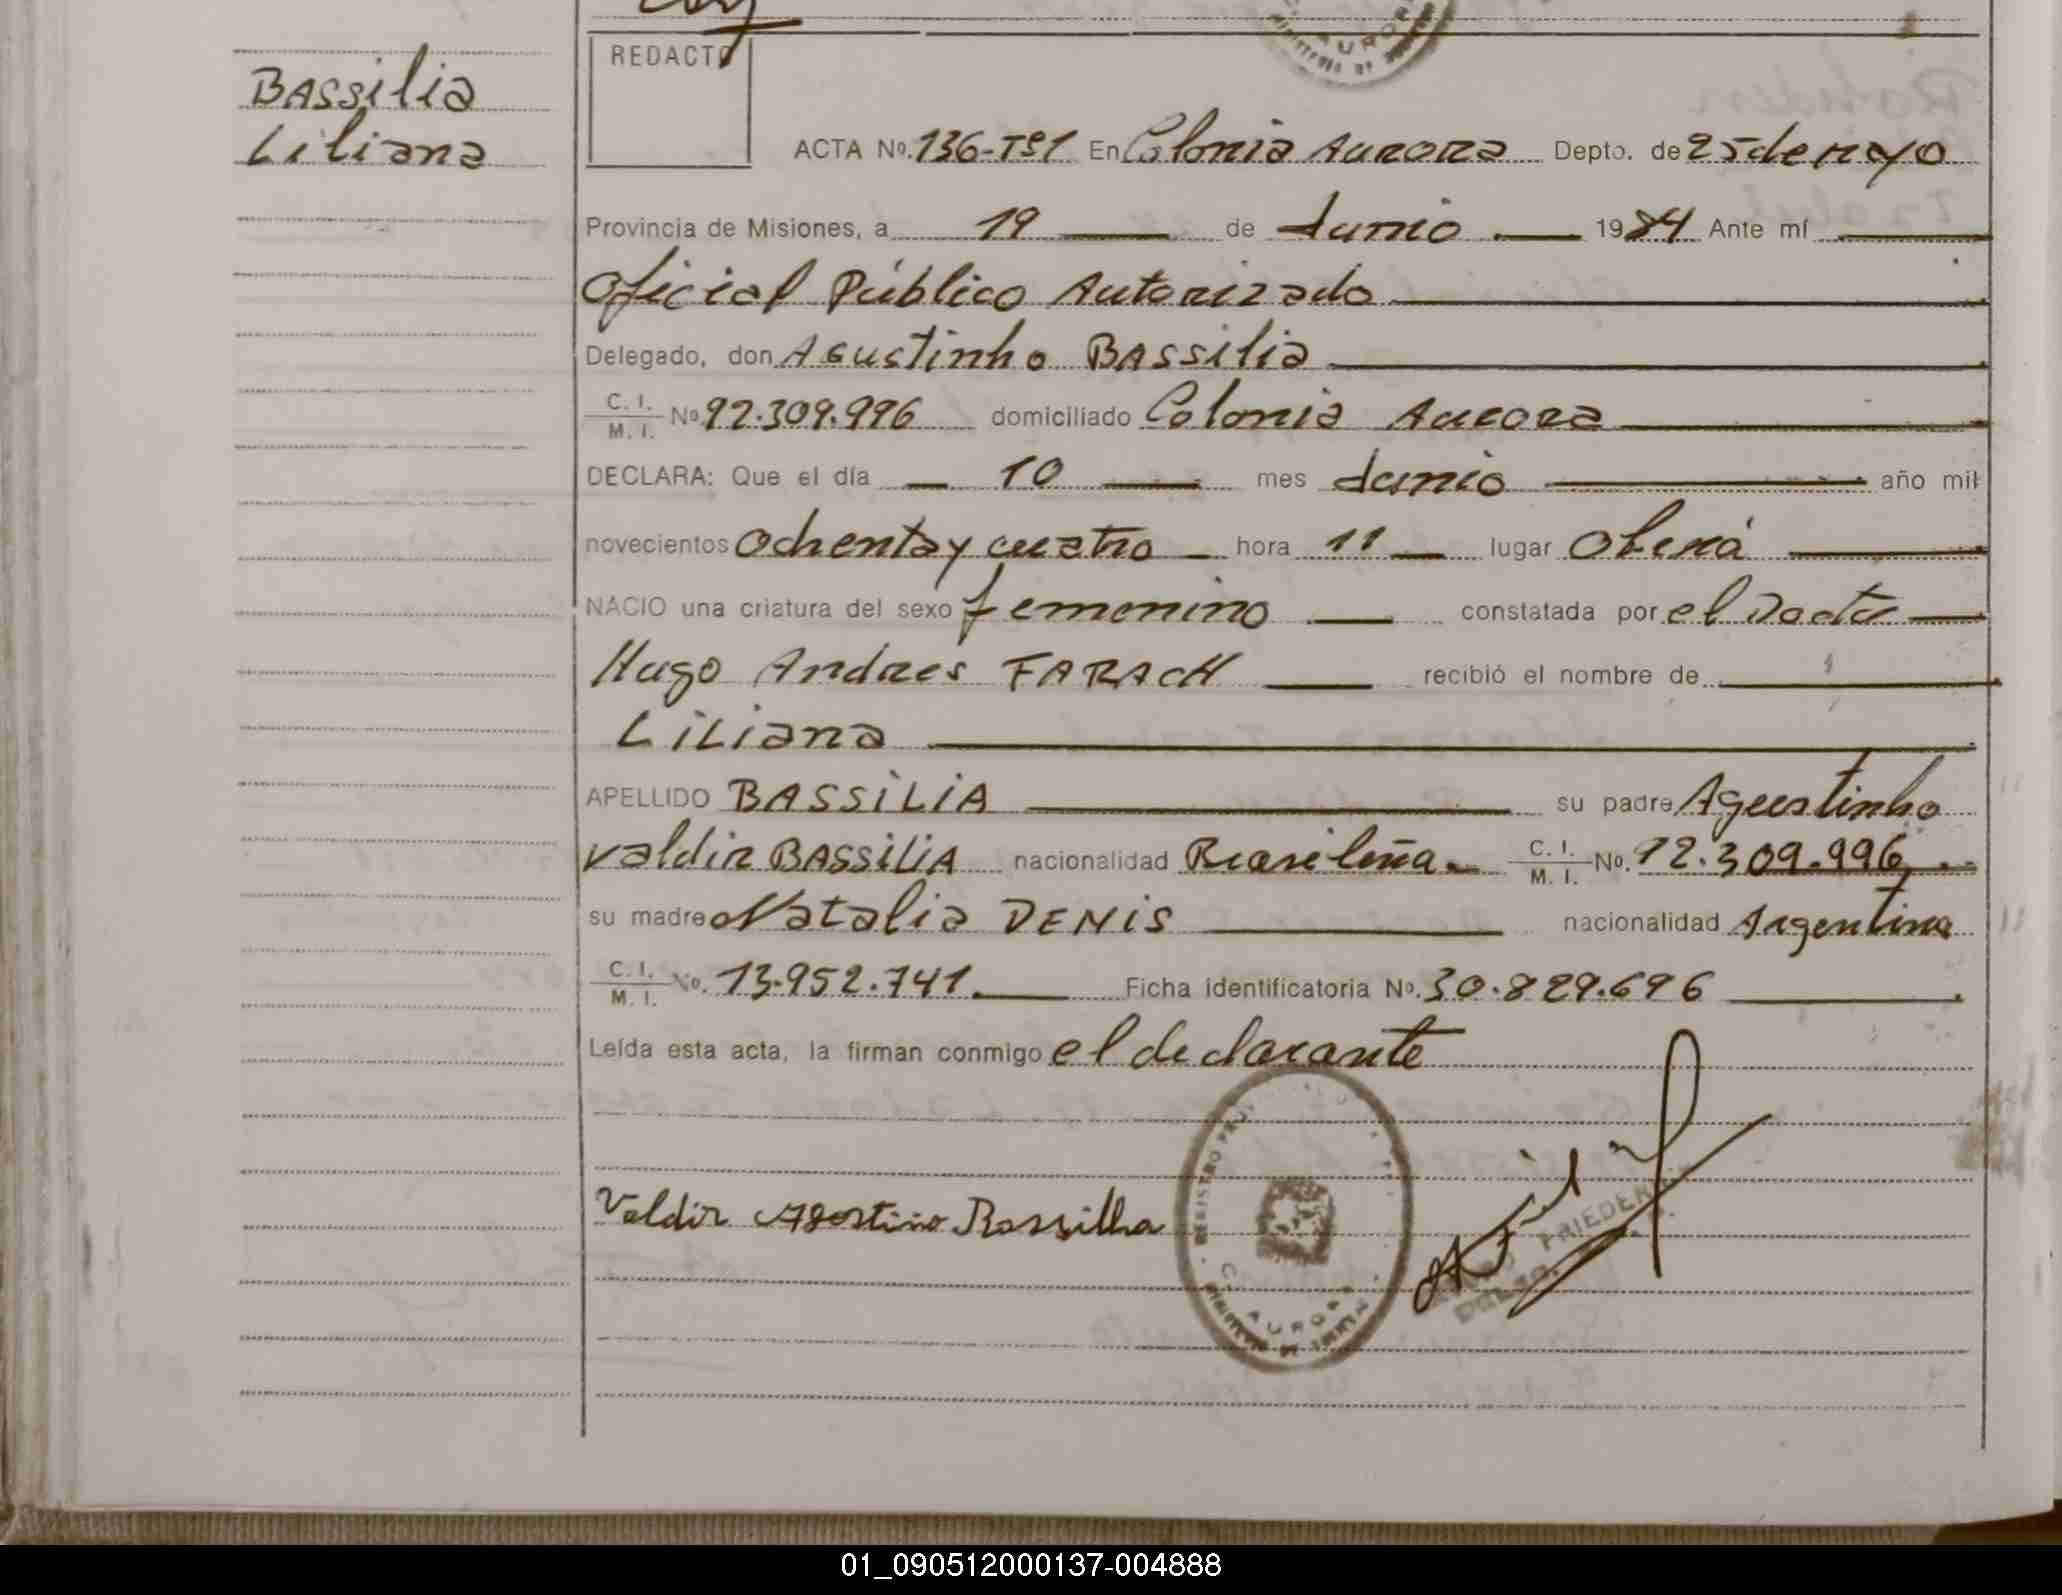 REDACTO
BASSilia
Liliana
ACTA No. 136-Tº1 En Colonia Aurora Depto. de 25 de mayo
Provincia de Misiones, a 19 de Junio 1984 Ante mí
Oficial Público Autorizado
Delegado, don Agustinho BASSilia
C. I. / M. I. No 92.309.996 domiciliado Colonia Aurora
DECLARA: Que el día 10 mes Junio año mil
novecientos Ochenta y cuatro hora 11 lugar Oberá
NACIO una criatura del sexo femenino constatada por el Doctor
Hugo Andres FARACH recibió el nombre de
LiLiana
APELLIDO BASSiLiA su padre Agustinho
Valdir BASSiLiA nacionalidad Brasileña C. I. / M. I. No. 92.309.996
su madre Natalia DENiS nacionalidad Argentina
C. I. / M. I. No. 13.952.741 Ficha identificatoria No. 30.829.696
Leída esta acta, la firman conmigo el declarante
Valdir Agostinho Bassilha
REGISTRO PROV
C. AURORA
FRIEDER
01_090512000137-004888